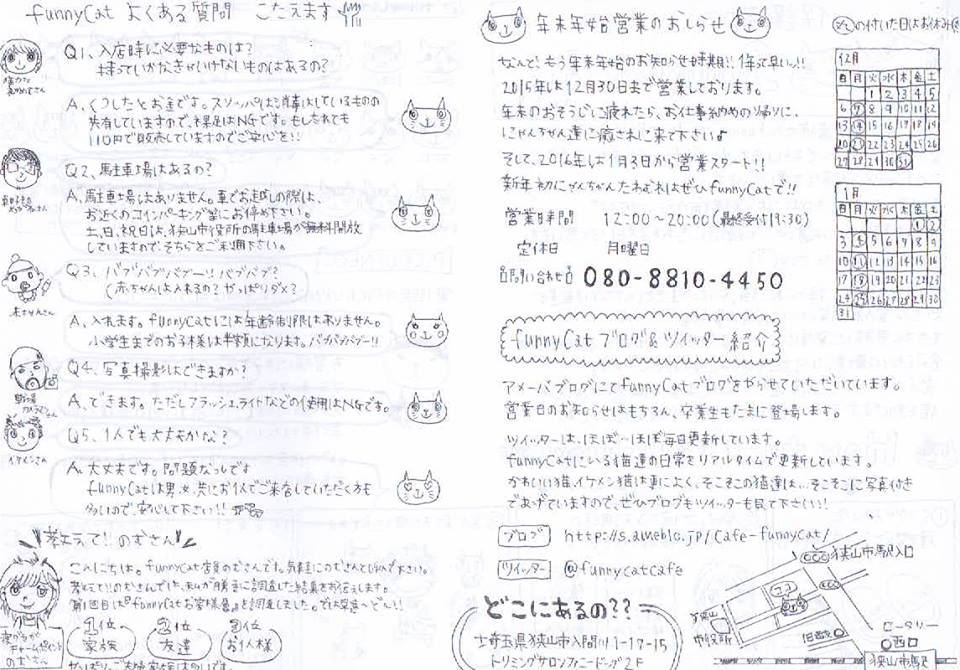 funnyCat よくある質問 こたえます
Q1、入店時に必要なものは?
持っていかなきゃいけないものはあるの?
A、くつしたとお金です。スリッパは消毒はしているものの
共有していますので、裸足はNGです。もし忘れても
110円で販売していますのでご安心を!!
Q2、駐車場はあるの?
A、駐車場はありません。車でお越しの際は、
お近くのコインパーキング等にお停め下さい。
土、日、祝日は、狭山市役所の駐車場が無料開放
していますので、そちらをご利用下さい。
Q3、バブバブバブー!!バブバブ?
(赤ちゃんは入れるの?やっぱりダメ?
赤ちゃんさん
A、入れます。funnyCatには年齢制限はありません。
小学生までのお子様は半額になります。バブバブバブー!!
Q4、写真撮影はできますか?
A、できます。ただしフラッシュ、ライトなどの使用はNGです。
Q5、1人でも大丈夫かな?
イケメンさん
A、大丈夫です。問題なっしです
funnyCatは男女共にお1人でご来店していただく方も
多いので、安心して下さい!!
教えて!!のむさん
こんにちは。funnyCat店員のむさんです。気軽にのむさんとよんで下さい。
教えて!!のむさんでは、私が勝手に調査した結果をお伝えします。
第1回目は『funnyCatお客様層』を調査しました。
1位 家族
2位 友達
3位 お1人様
年末年始営業のおしらせ
の付いた日はお休み
なんと!もう年末年始のお知らせ時期!!年って早いっ!!
2015年は12月30日まで営業しております。
年末のおそうじに疲れたら、お仕事納めの帰りに、
にゃんちゃん達に癒されに来て下さい♪
そして、2016年は1月3日から営業スタート!!
新年初にゃんちゃんたわむれはぜひfunnyCatで!!
営業時間 12:00~20:00(最終受付19:30)
定休日 月曜日
お問い合せ 080-8810-4450
12月
日 月 火 水 木 金 土
1 2 3 4 5
6 7 8 9 10 11 12
13 14 15 16 17 18 19
20 21 22 23 24 25 26
27 28 29 30 31
1月
日 月 火 水 木 金 土
1 2
3 4 5 6 7 8 9
10 11 12 13 14 15 16
17 18 19 20 21 22 23
24 25 26 27 28 29 30
31
funnyCat ブログ&ツイッター紹介
アメーバブログにてfunnyCatブログをやらせていただいています。
営業日のお知らせはもちろん、卒業生もたまに登場します。
ツイッターは、ほぼ~ほぼ毎日更新しています。
funnyCatにいる猫達の日常をリアルタイムで更新しています。
かわいい猫、イケメン猫は更によく、そこそこの猫達は…そこそこに写真付き
であげていますので、ぜひブログもツイッターも見て下さい!!
ブログ http://s.ameblo.jp/cafe-funnycat/
ツイッター @funnycatcafe
どこにあるの??
埼玉県狭山市入間川1-17-15
トリミングサロンファニードッグ2F
狭山市駅入口
ココ
狭山市役所
ロータリー
西口
狭山市駅